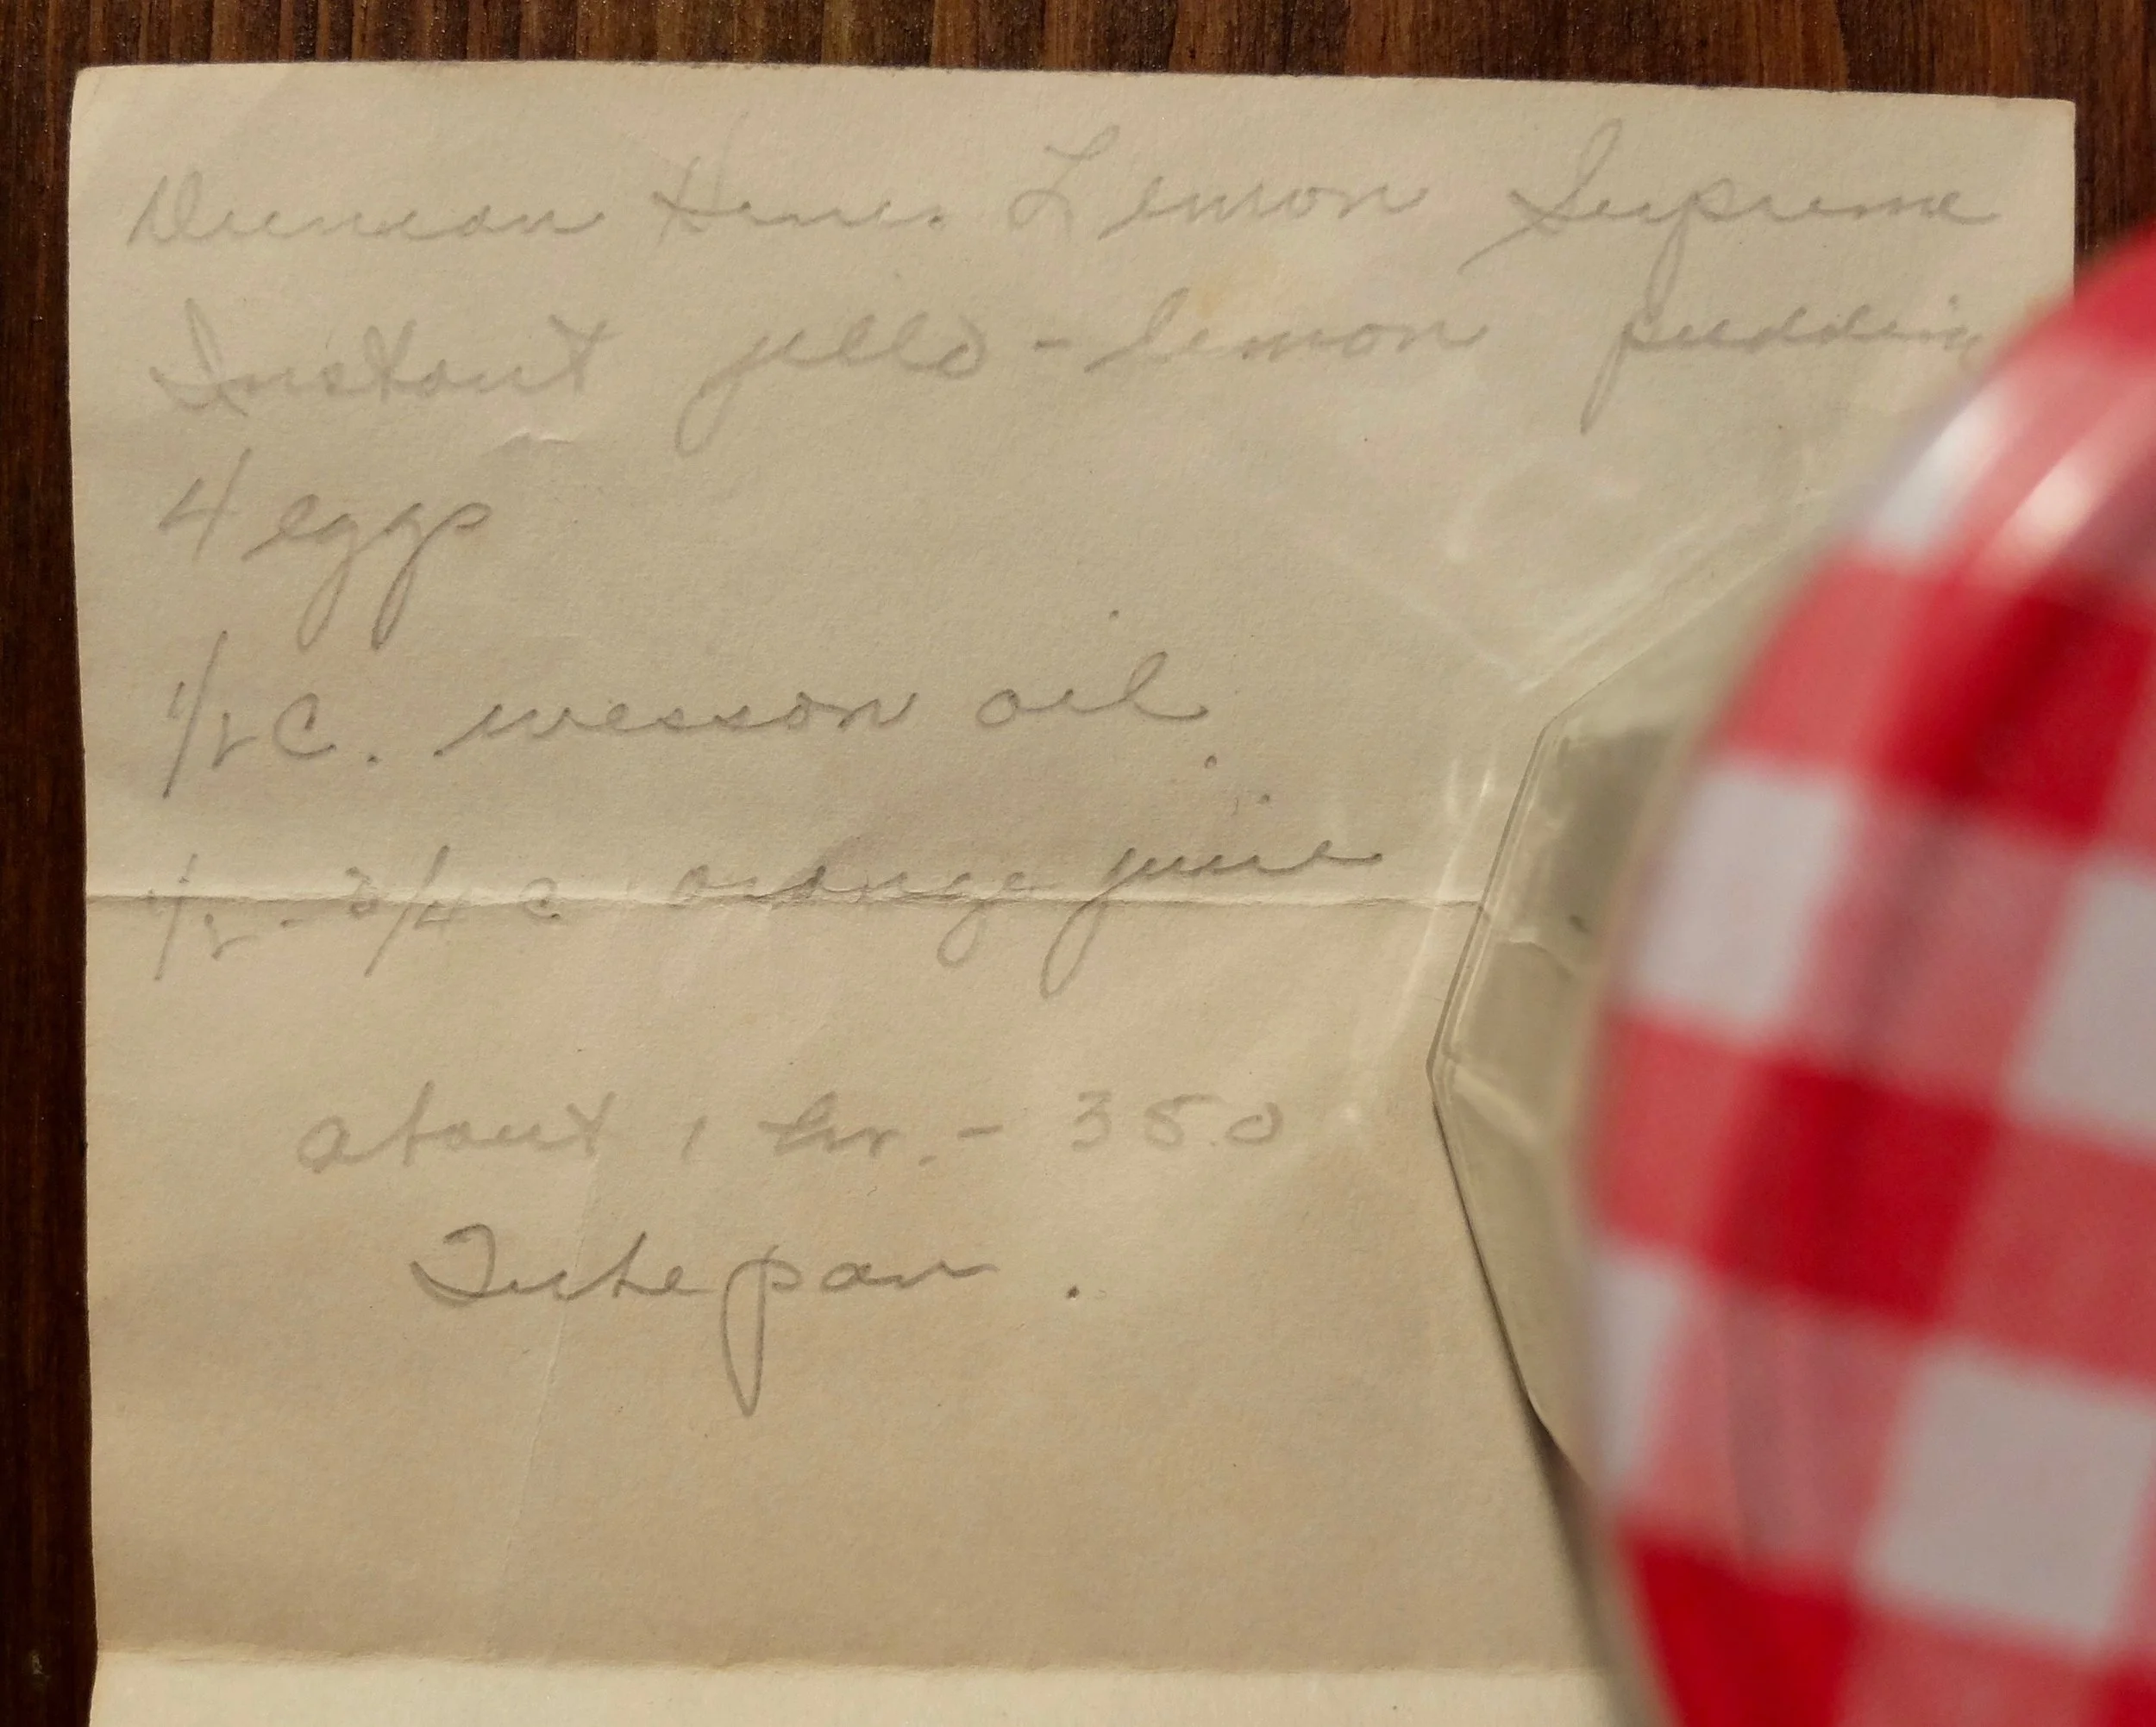 Duncan Hines Lemon Supreme
Instant jello - lemon pudding
4 eggs
1/2 C. wesson oil
1/2 - 3/4 c orange juice
about 1 hr. - 350
Tube pan .